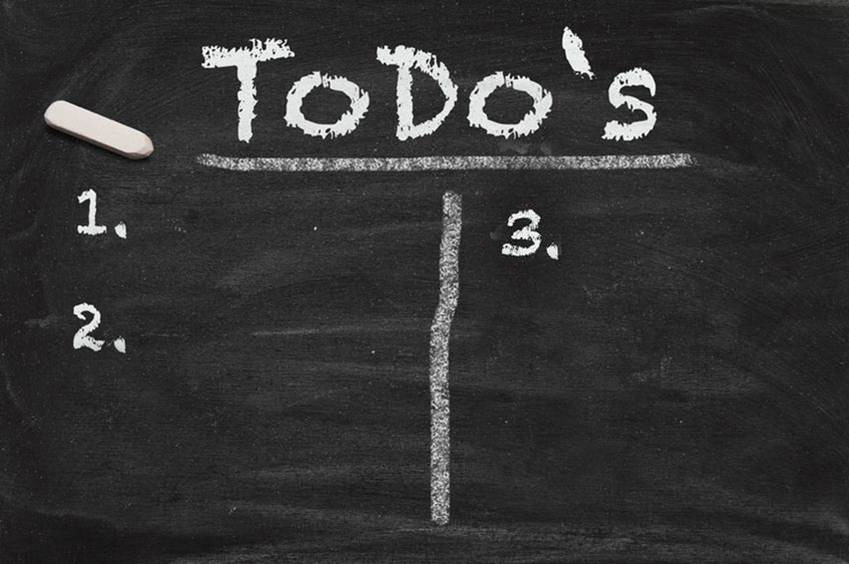 ToDo's
1.
2.
3.